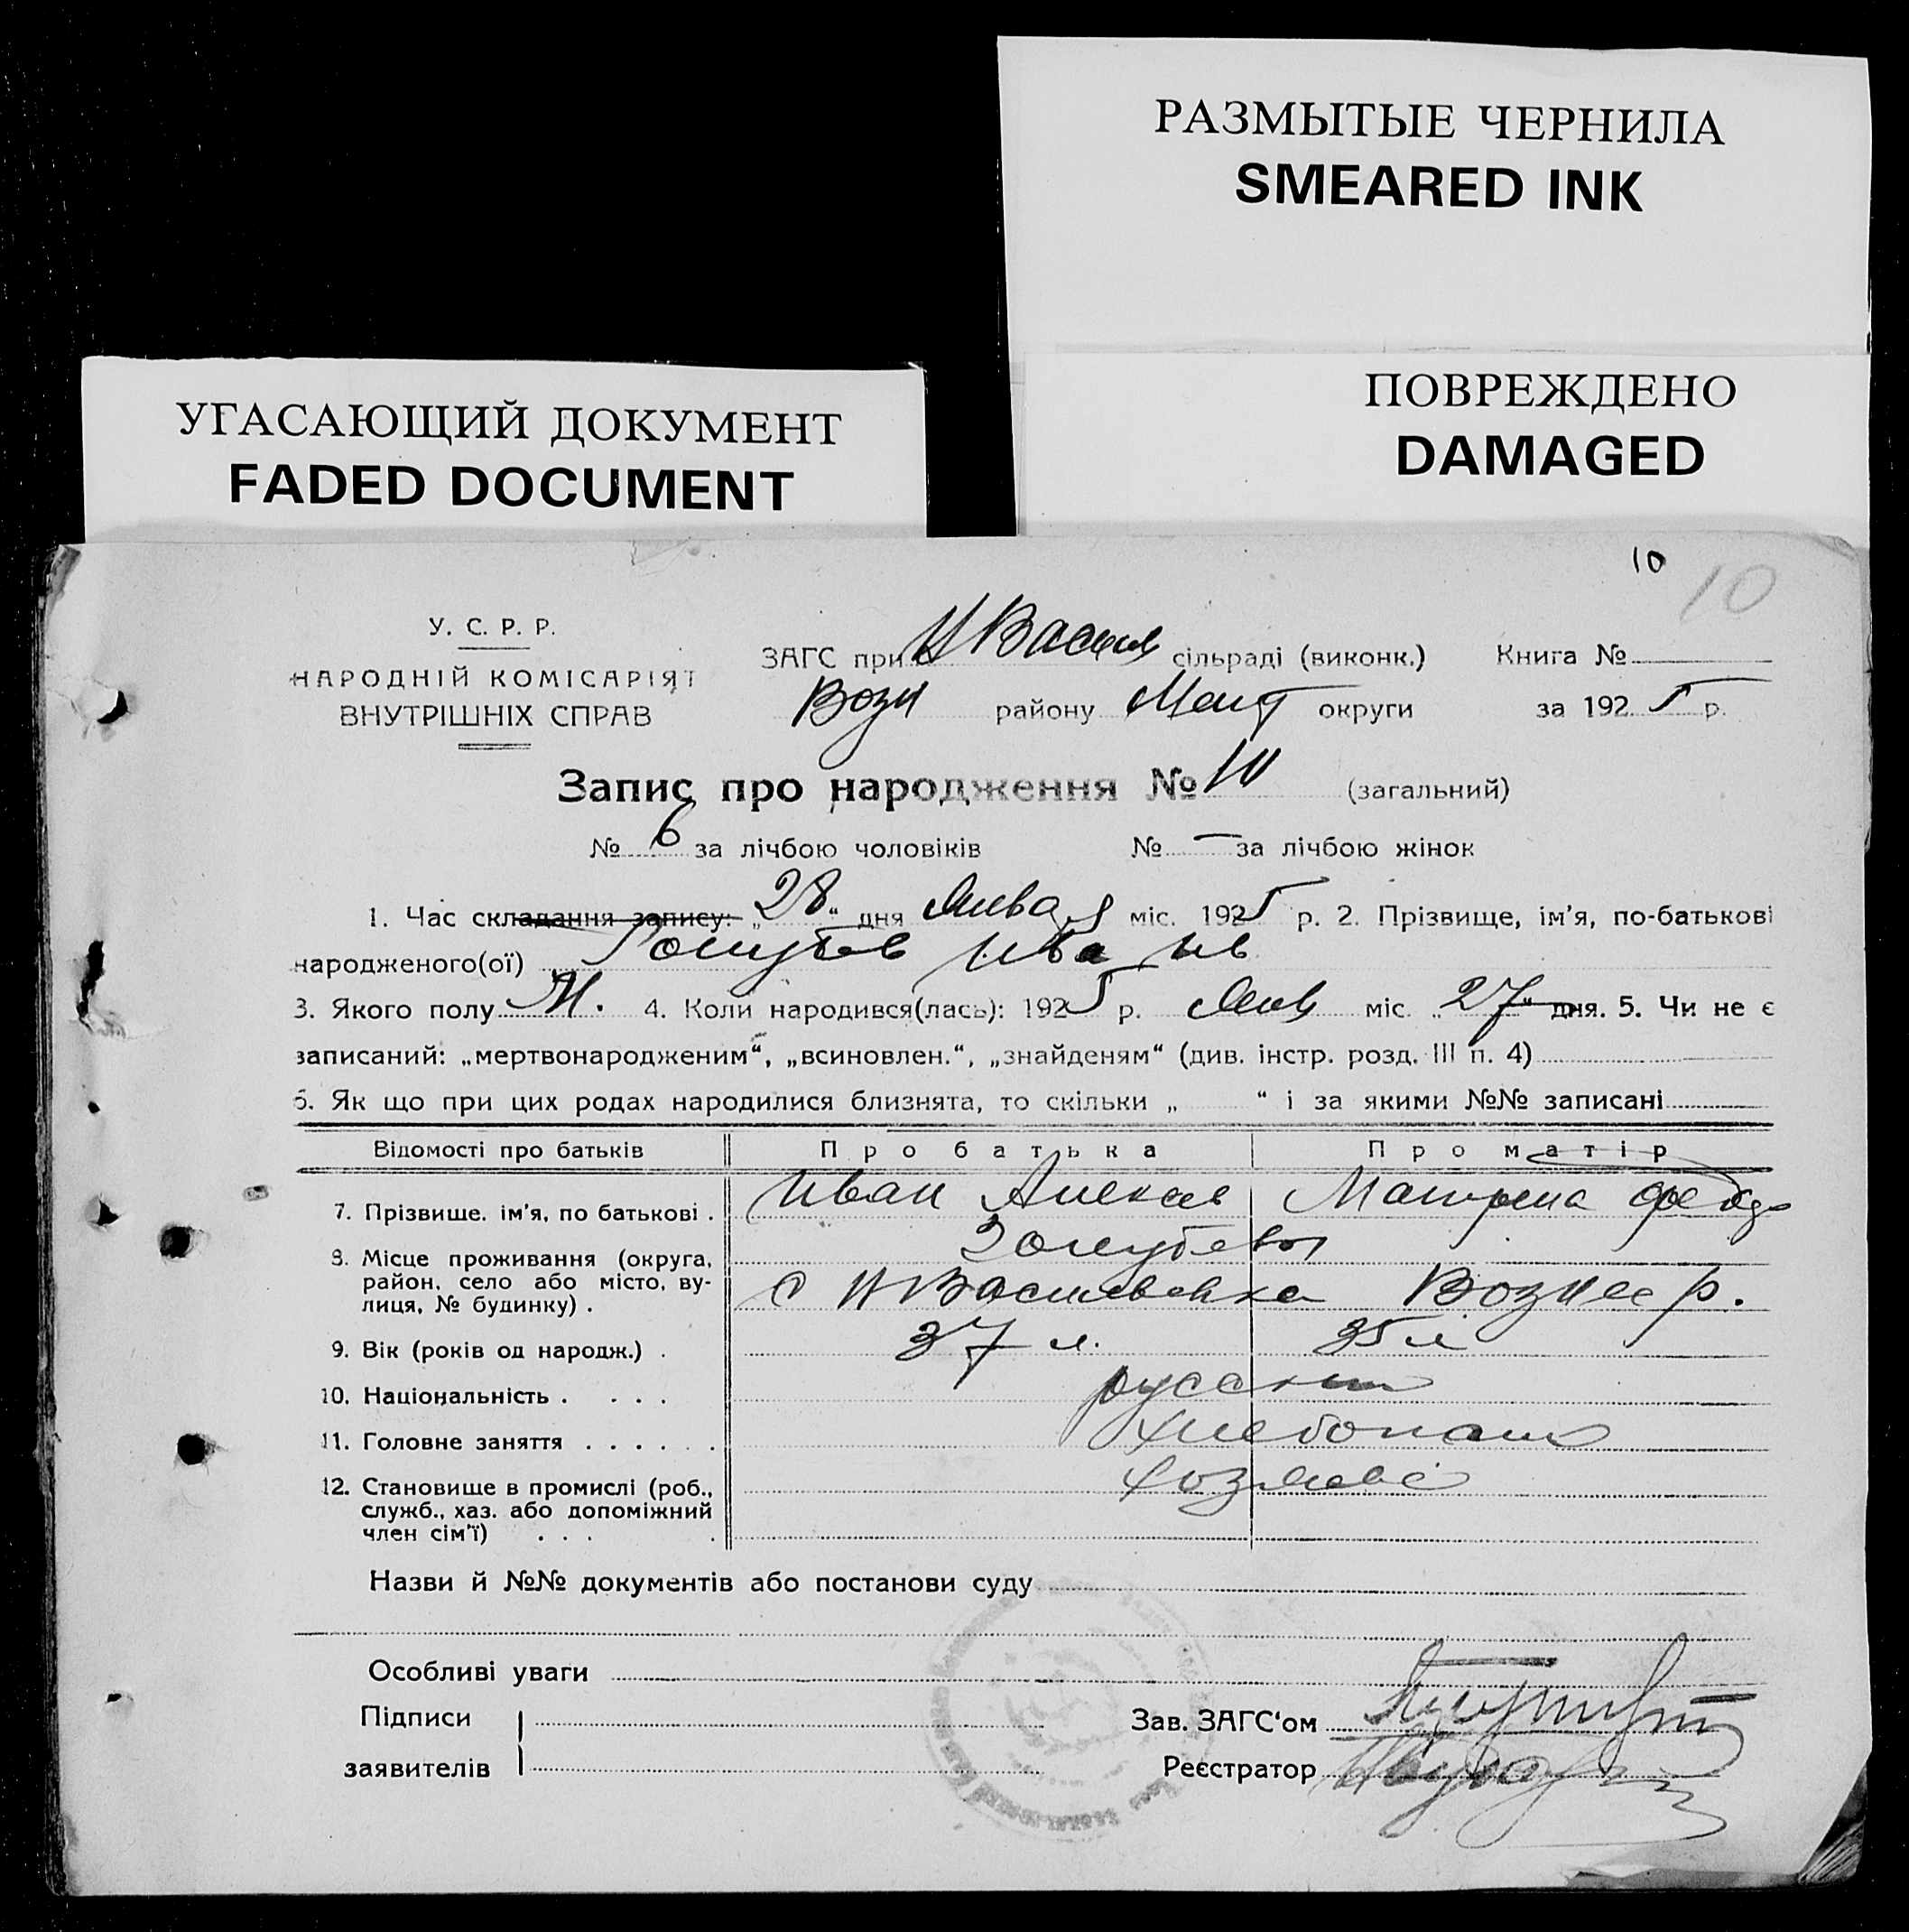 РАЗМЫТЫЕ ЧЕРНИЛА
SMEARED INK
ПОВРЕЖДЕНО
DAMAGED
УГАСАЮЩИЙ ДОКУМЕНТ
FADED DOCUMENT
10 10
У. С. Р. Р.
НАРОДНІЙ КОМІСАРІЯТ
ВНУТРІШНІХ СПРАВ
ЗАГС при Н Васил сільраді (виконк.) Книга №
Возн району Меліт округи за 1925 р.
Запис про народження № 10 (загальний)
№ 6 за лічбою чоловіків № — за лічбою жінок
1. Час складання запису: „28“ дня Января міс. 1925 р. 2. Прізвище, ім'я, по-батькові
народженого(ої) Голубев Ива Ив
3. Якого полу М. 4. Коли народився(лась): 1925 р. Янв міс. „27“ дня. 5. Чи не є
записаний: „мертвонародженим“, „всиновлен.“, „знайденям“ (див. інстр. розд. III п. 4)
6. Як що при цих родах народилися близнята, то скільки „ “ і за якими №№ записані
Відомості про батьків Про батька Про матір
7. Прізвище, ім'я, по батькові . Иван Алексе Матрена Федо
Голубевы
8. Місце проживання (округа, район, село або місто, ву-
лиця, № будинку) . с Н Василевка Вознес р.
9. Вік (років од народж.) . 37 л. 35 л
10. Національність . . . . русские
11. Головне заняття . . . . . . хлебопаш
12. Становище в промислі (роб., хозяева
служб., хаз. або допоміжний
член сім'ї) . . . .
Назви й №№ документів або постанови суду
Особливі уваги
Підписи
заявителів
Зав. ЗАГС'ом
Реєстратор